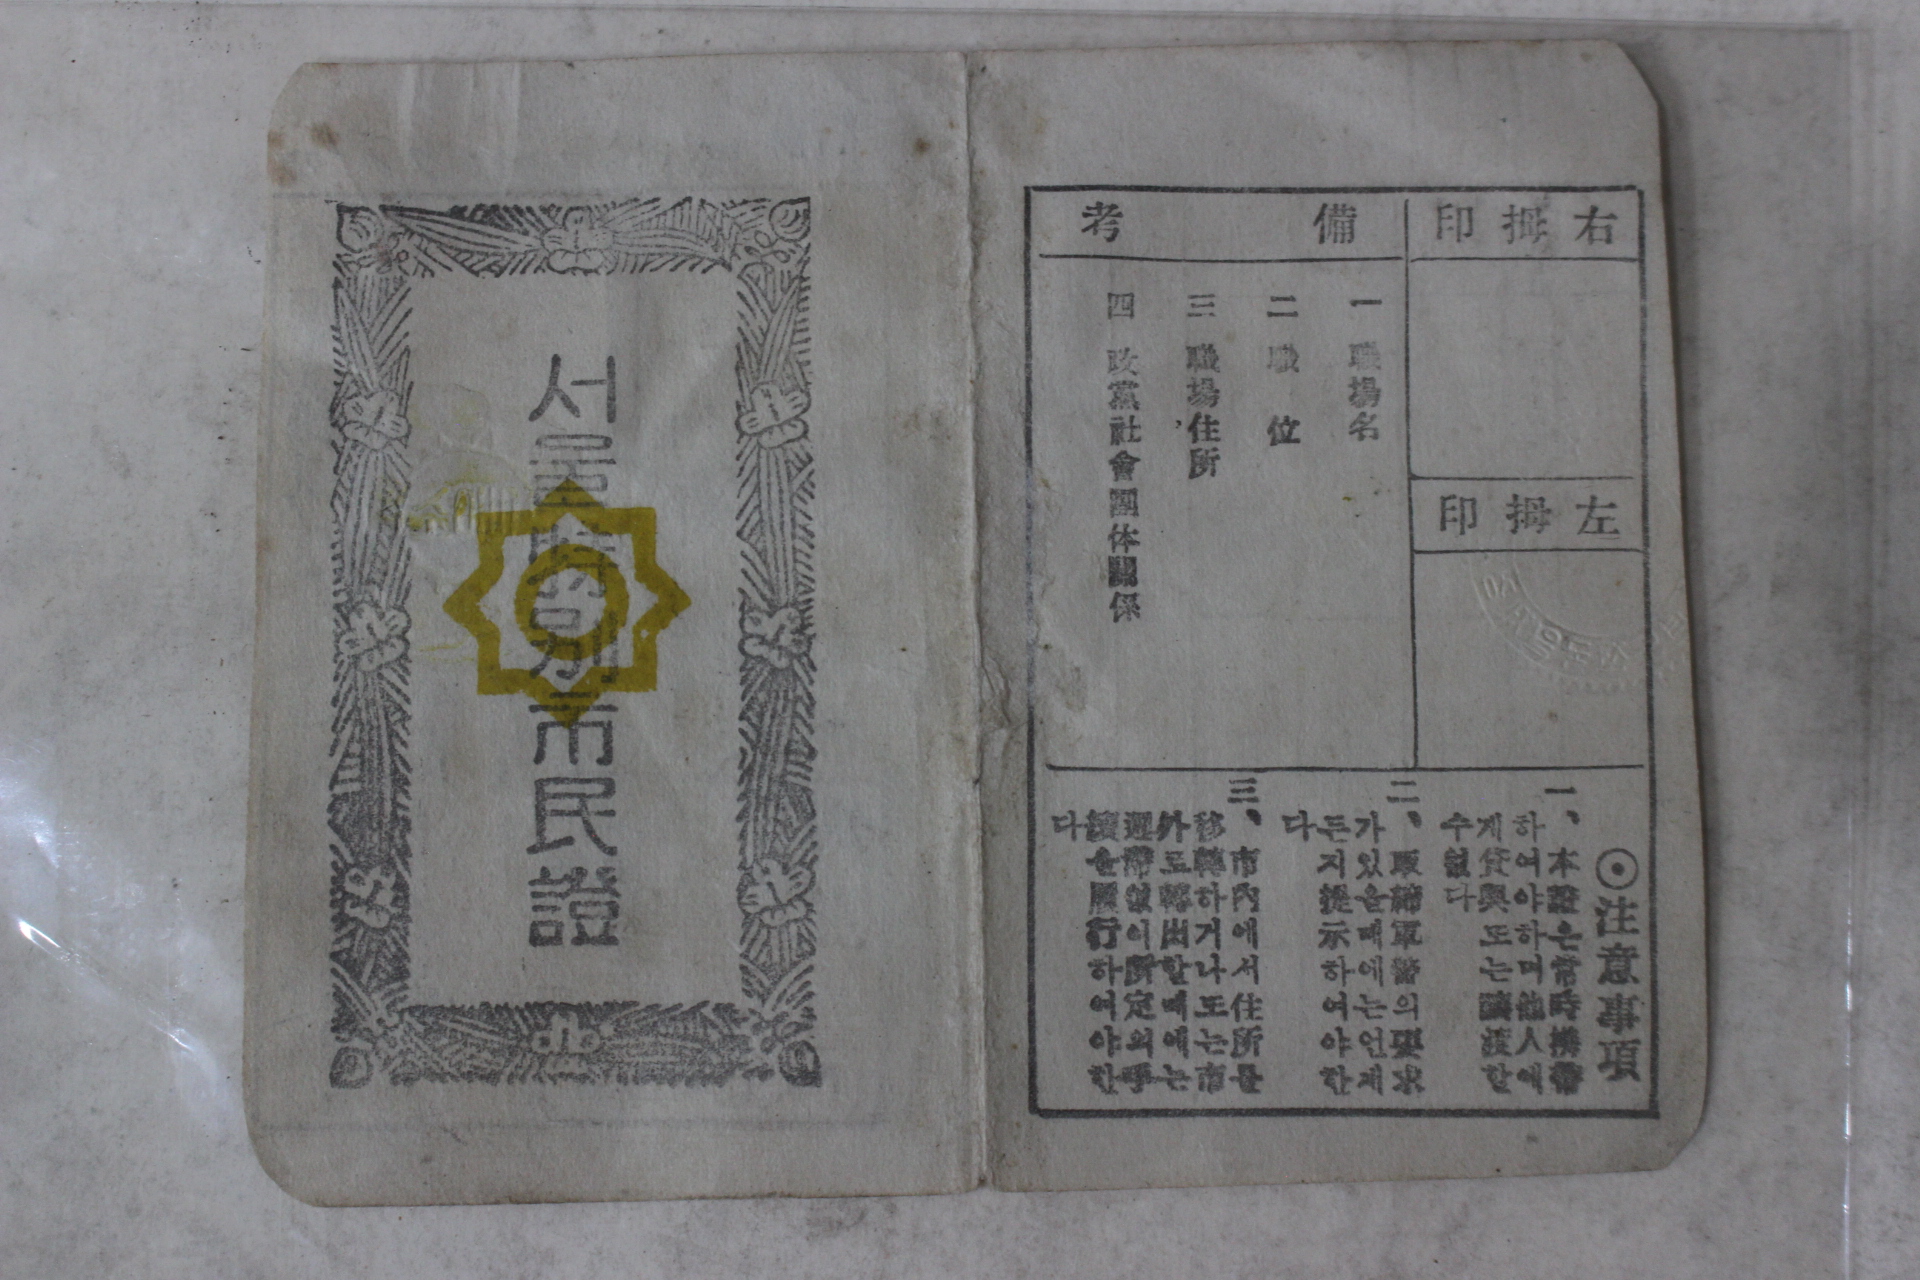 서울特別市民證
右拇印
左拇印
備考
一 職場名
二 職位
三 職場住所
四 政黨社會團体關係
⊙注意事項
一、本證은常時携帶
하여야하며他人에
게貸與또는讓渡할
수없다
二、取締軍警의要求
가있을때에는언제
든지提示하여야한
다
三、市內에서住所를
移轉하거나또는市
外로轉出할때에는
遲滯없이所定의手
續을履行하여야한
다